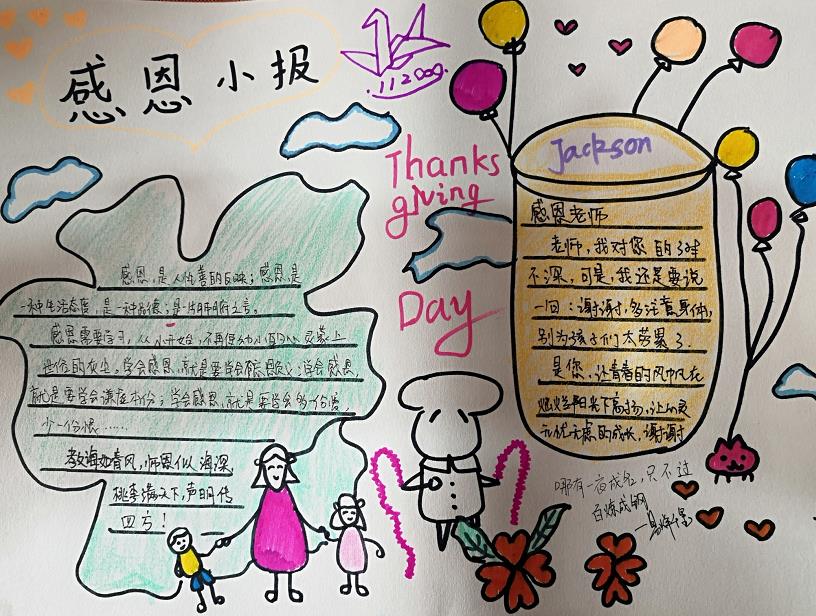 感恩小报
112009.
Thanks
giving
Day
Jackson
感恩老师
老师，我对您的了解
不深，可是，我还是要说
一回：谢谢，多注意身体，
别为孩子们太劳累了.
是您，让青春的风帆在
阳光下高扬，让心灵
无忧无虑的成长，谢谢
感恩，是人性善的反映；感恩是
一种生活态度，是一种品德，是
感恩需要学习，从小开始，不再
世俗的灰尘，学会感恩，就是要学会 学会感恩，
就是要学会 学会感恩，就是要学会多一份爱，
少一份恨……
教诲如春风，师恩似海深
桃李满天下，声明传
四方！
哪有一夜成名，只不过
百炼成钢